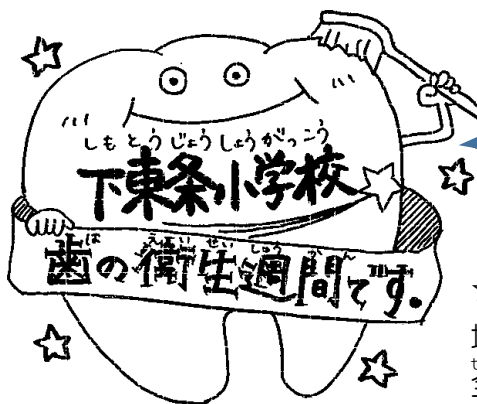 しもとうじょうしょうがっこう
下東条小学校
は えいせいしゅうかん
歯の衛生週間です。